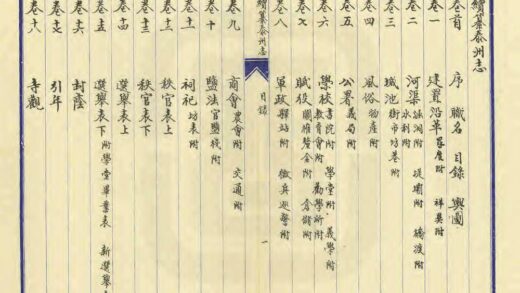 續纂泰州志
卷首 序 職名 目錄 輿圖
卷一 建置沿革 星度附 祥異附
卷二 河渠 水利附 堤壩附 橋渡附
卷三 城池 街市坊巷附
卷四 風俗 物產附
卷五 公署 義局附
卷六 學校 書院附 教育會附 學堂附 勸學所附 義學附
卷七 賦役 關榷釐金附 倉儲附
卷八 軍政 驛站附 徵兵巡警附
續纂泰州志 目錄 一
卷九 商會 農會附 交通附
卷十 鹽法 官鹽棧附
卷十一 祠祀 坊表附
卷十二 秩官表上
卷十三 秩官表下
卷十四 選舉表上
卷十五 選舉表下 附學堂畢業表 新選舉
卷十六 封蔭
卷十七 引年
卷十八 寺觀